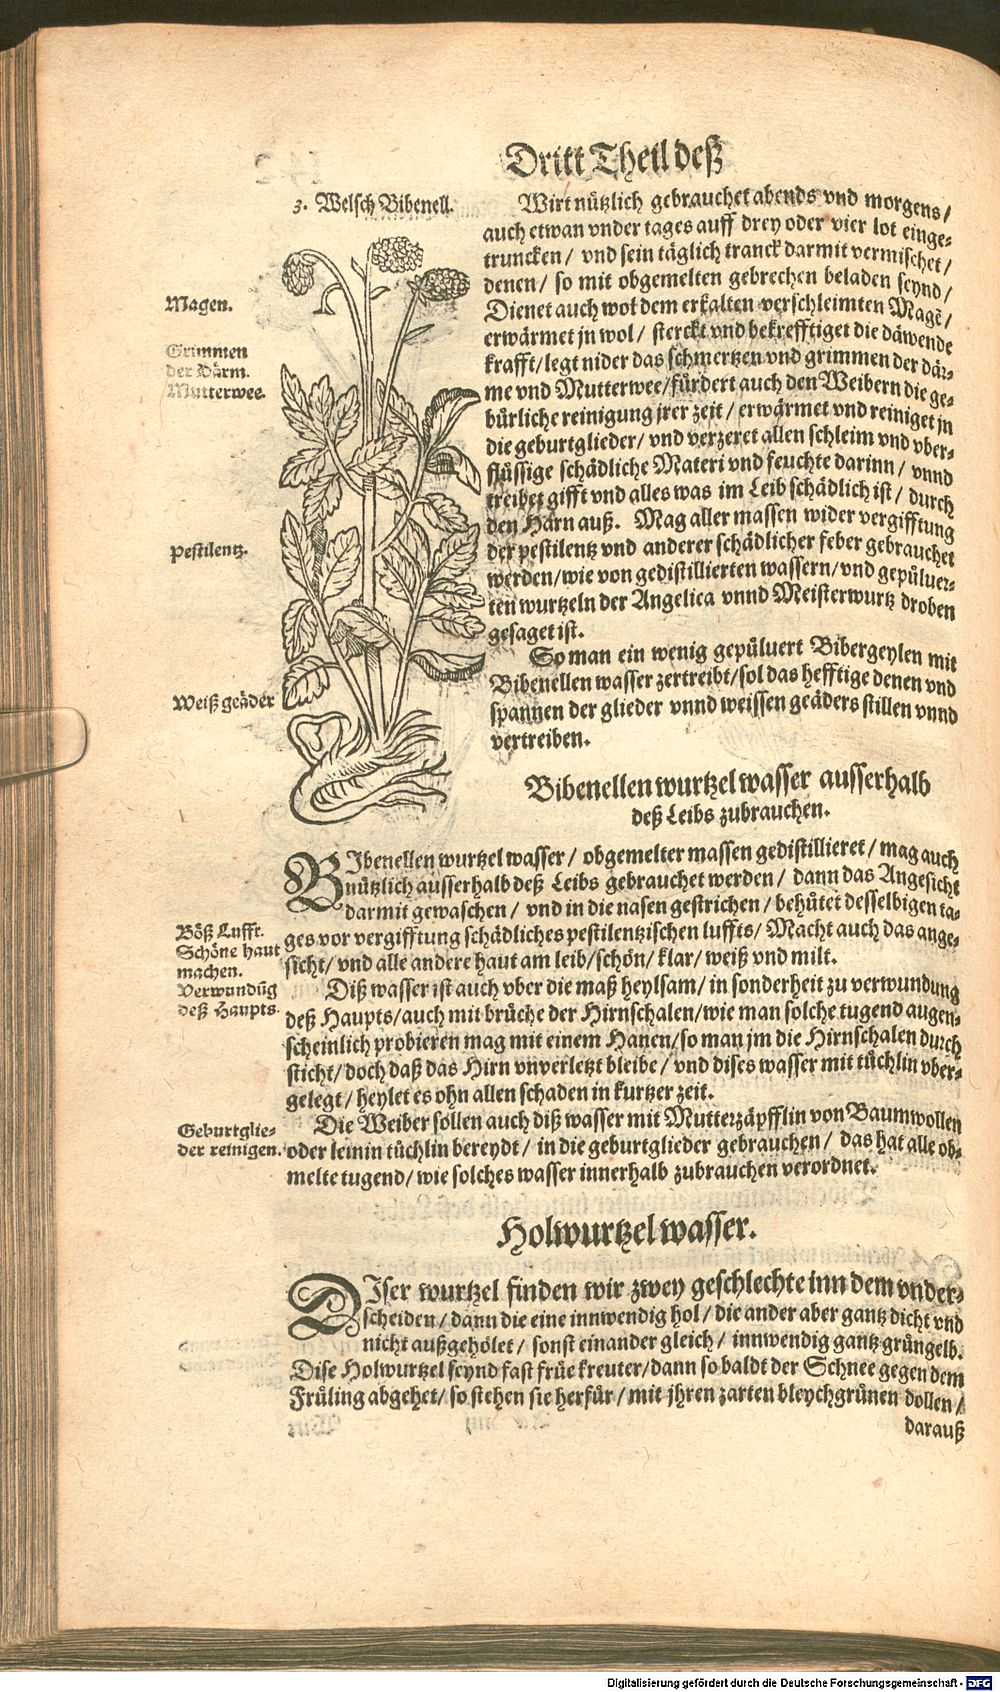 Dritt Theil deß
3. Welsch Bibenell.
Wirt nützlich gebrauchet abends vnd morgens/
auch etwan vnder tages auff drey oder vier lot einge-
truncken/ vnd sein täglich tranck darmit vermischet/
denen/ so mit obgemelten gebrechen beladen seynd/
Dienet auch wol dem erkalten verschleimten Magē/
erwärmet jn wol/ sterckt vnd bekrefftiget die däwende
krafft/ legt nider das schmertzen vnd grimmen der där-
me vnd Mutterwee/ fürdert auch den Weibern die ge-
bürliche reinigung jrer zeit/ erwärmet vnd reiniget jn
die geburtglieder/ vnd verzeret allen schleim vnd vber-
flüssige schädliche Materi vnd feuchte darinn/ vnnd
treibet gifft vnd alles was im Leib schädlich ist/ durch
den Harn auß. Mag aller massen wider vergifftung
der pestilentz vnd anderer schädlicher feber gebrauchet
werden/ wie von gedistillierten wassern/ vnd gepülver-
ten wurtzeln der Angelica vnnd Meisterwurtz droben
gesaget ist.
So man ein wenig gepüluert Bibergeylen mit
Bibenellen wasser zertreibt/ sol das hefftige denen vnd
spannen der glieder vnnd weissen geäders stillen vnnd
vertreiben.
Magen.
Grimmen
der Därm.
Mutterwee.
Pestilentz.
Weiß geäder
Bibenellen wurtzel wasser ausserhalb
deß Leibs zubrauchen.
BIbenellen wurtzel wasser/ obgemelter massen gedistillieret/ mag auch
nützlich ausserhalb deß Leibs gebrauchet werden/ dann das Angesicht
darmit gewaschen/ vnd in die nasen gestrichen/ behütet desselbigen ta-
ges vor vergifftung schädliches pestilentzischen luffts/ Macht auch das ange-
sicht/ vnd alle andere haut am leib/ schön/ klar/ weiß vnd milt.
Diß wasser ist auch vber die maß heylsam/ in sonderheit zu verwundung
deß Haupts/ auch mit brüche der Hirnschalen/ wie man solche tugend augen-
scheinlich probieren mag mit einem Hanen/ so man jm die Hirnschalen durch
sticht/ doch daß das Hirn vnverletzt bleibe/ vnd dises wasser mit tüchlin vber-
gelegt/ heylet es ohn allen schaden in kurtzer zeit.
Die Weiber sollen auch diß wasser mit Mutterzäpfflin von Baumwollen
oder leinin tüchlin bereydt/ in die geburtglieder gebrauchen/ das hat alle ob-
melte tugend/ wie solches wasser innerhalb zubrauchen verordnet.
Böß Lufft.
Schöne haut
machen.
Verwundūg
deß Haupts.
Geburtglie-
der reinigen.
Holwurtzel wasser.
DIser wurtzel finden wir zwey geschlechte inn dem vnder-
scheiden/ dann die eine innwendig hol/ die ander aber gantz dicht vnd
nicht außgehölet/ sonst einander gleich/ innwendig gantz grüngelb.
Dise Holwurtzel seynd fast früe kreuter/ dann so baldt der Schnee gegen dem
Früling abgehet/ so stehen sie herfür/ mit jhren zarten bleychgrünen dollen/
darauß
Digitalisierung gefördert durch die Deutsche Forschungsgemeinschaft - DFG